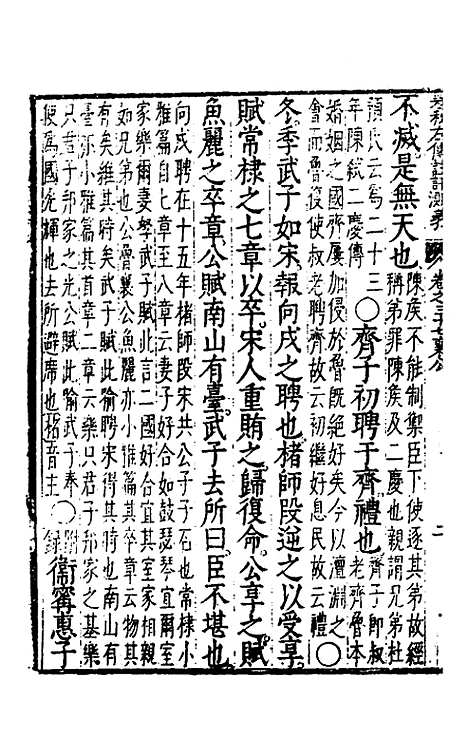 春秋左傳註評測義 卷之三十七 襄公 二
不滅是無天也
陳侯不能制禦臣下使逐其弟故經
稱弟罪陳侯及二慶也親謂兄弟杜
預氏云為二十三
年陳殺二慶傳
○齊子初聘于齊禮也
齊子即叔
老齊魯本
婚姻之國齊屢加侵於魯既絶好矣今以澶淵之
會而復使叔老聘齊故云初繼好息民故云禮○
冬季武子如宋報向戌之聘也褚師段逆之以受享
賦常棣之七章以卒宋人重賄之歸復命公享之賦
魚麗之卒章公賦南山有臺武子去所曰臣不堪也
向戌聘在十五年褚師段宋共公子子石也常棣小
雅七章至八章云妻子好合如鼓瑟琴宜爾室
家樂爾妻孥武子賦此言二國好合宜其室家相親
如兄弟也公魯襄公魚麗亦小雅篇其卒章云物其
有矣維其時矣武子賦此喻聘宋得其時也南山有
臺亦小雅篇其首章二章云樂只君子邦家之基樂
只君子邦家之光公賦此喻武子奉
使為國光輝也去所避席也褚音主
○
附
錄
衛甯惠子